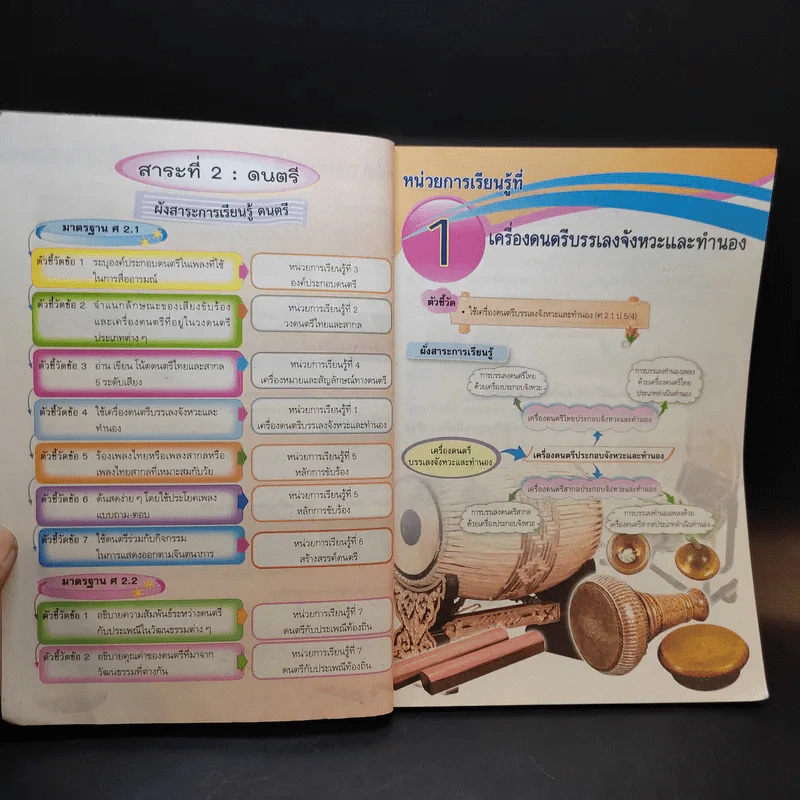 สาระที่ 2 : ดนตรี
ผังสาระการเรียนรู้ ดนตรี
มาตรฐาน ศ 2.1
ตัวชี้วัดข้อ 1 ระบุองค์ประกอบดนตรีในเพลงที่ใช้
ในการสื่ออารมณ์
หน่วยการเรียนรู้ที่ 3
องค์ประกอบดนตรี
ตัวชี้วัดข้อ 2 จำแนกลักษณะของเสียงขับร้อง
และเครื่องดนตรีที่อยู่ในวงดนตรี
ประเภทต่าง ๆ
หน่วยการเรียนรู้ที่ 2
วงดนตรีไทยและสากล
ตัวชี้วัดข้อ 3 อ่าน เขียน โน้ตดนตรีไทยและสากล
5 ระดับเสียง
หน่วยการเรียนรู้ที่ 4
เครื่องหมายและสัญลักษณ์ทางดนตรี
ตัวชี้วัดข้อ 4 ใช้เครื่องดนตรีบรรเลงจังหวะและ
ทำนอง
หน่วยการเรียนรู้ที่ 1
เครื่องดนตรีบรรเลงจังหวะและทำนอง
ตัวชี้วัดข้อ 5 ร้องเพลงไทยหรือเพลงสากลหรือ
เพลงไทยสากลที่เหมาะสมกับวัย
หน่วยการเรียนรู้ที่ 5
หลักการขับร้อง
ตัวชี้วัดข้อ 6 ด้นสดง่าย ๆ โดยใช้ประโยคเพลง
แบบถาม-ตอบ
หน่วยการเรียนรู้ที่ 5
หลักการขับร้อง
ตัวชี้วัดข้อ 7 ใช้ดนตรีร่วมกับกิจกรรม
ในการแสดงออกตามจินตนาการ
หน่วยการเรียนรู้ที่ 6
สร้างสรรค์ดนตรี
มาตรฐาน ศ 2.2
ตัวชี้วัดข้อ 1 อธิบายความสัมพันธ์ระหว่างดนตรี
กับประเพณีในวัฒนธรรมต่าง ๆ
หน่วยการเรียนรู้ที่ 7
ดนตรีกับประเพณีท้องถิ่น
ตัวชี้วัดข้อ 2 อธิบายคุณค่าของดนตรีที่มาจาก
วัฒนธรรมที่ต่างกัน
หน่วยการเรียนรู้ที่ 7
ดนตรีกับประเพณีท้องถิ่น
หน่วยการเรียนรู้ที่
1
เครื่องดนตรีบรรเลงจังหวะและทำนอง
ตัวชี้วัด
• ใช้เครื่องดนตรีบรรเลงจังหวะและทำนอง (ศ 2.1 ป.5/4)
ผังสาระการเรียนรู้
การบรรเลงดนตรีไทย
ด้วยเครื่องประกอบจังหวะ
การบรรเลงทำนองเพลง
ด้วยเครื่องดนตรีไทย
ประเภทดำเนินทำนอง
เครื่องดนตรีไทยประกอบจังหวะและทำนอง
เครื่องดนตรี
บรรเลงจังหวะและทำนอง
เครื่องดนตรีประกอบจังหวะและทำนอง
เครื่องดนตรีสากลประกอบจังหวะและทำนอง
การบรรเลงดนตรีสากล
ด้วยเครื่องประกอบจังหวะ
การบรรเลงทำนองเพลงด้วย
เครื่องดนตรีสากลประเภทดำเนินทำนอง